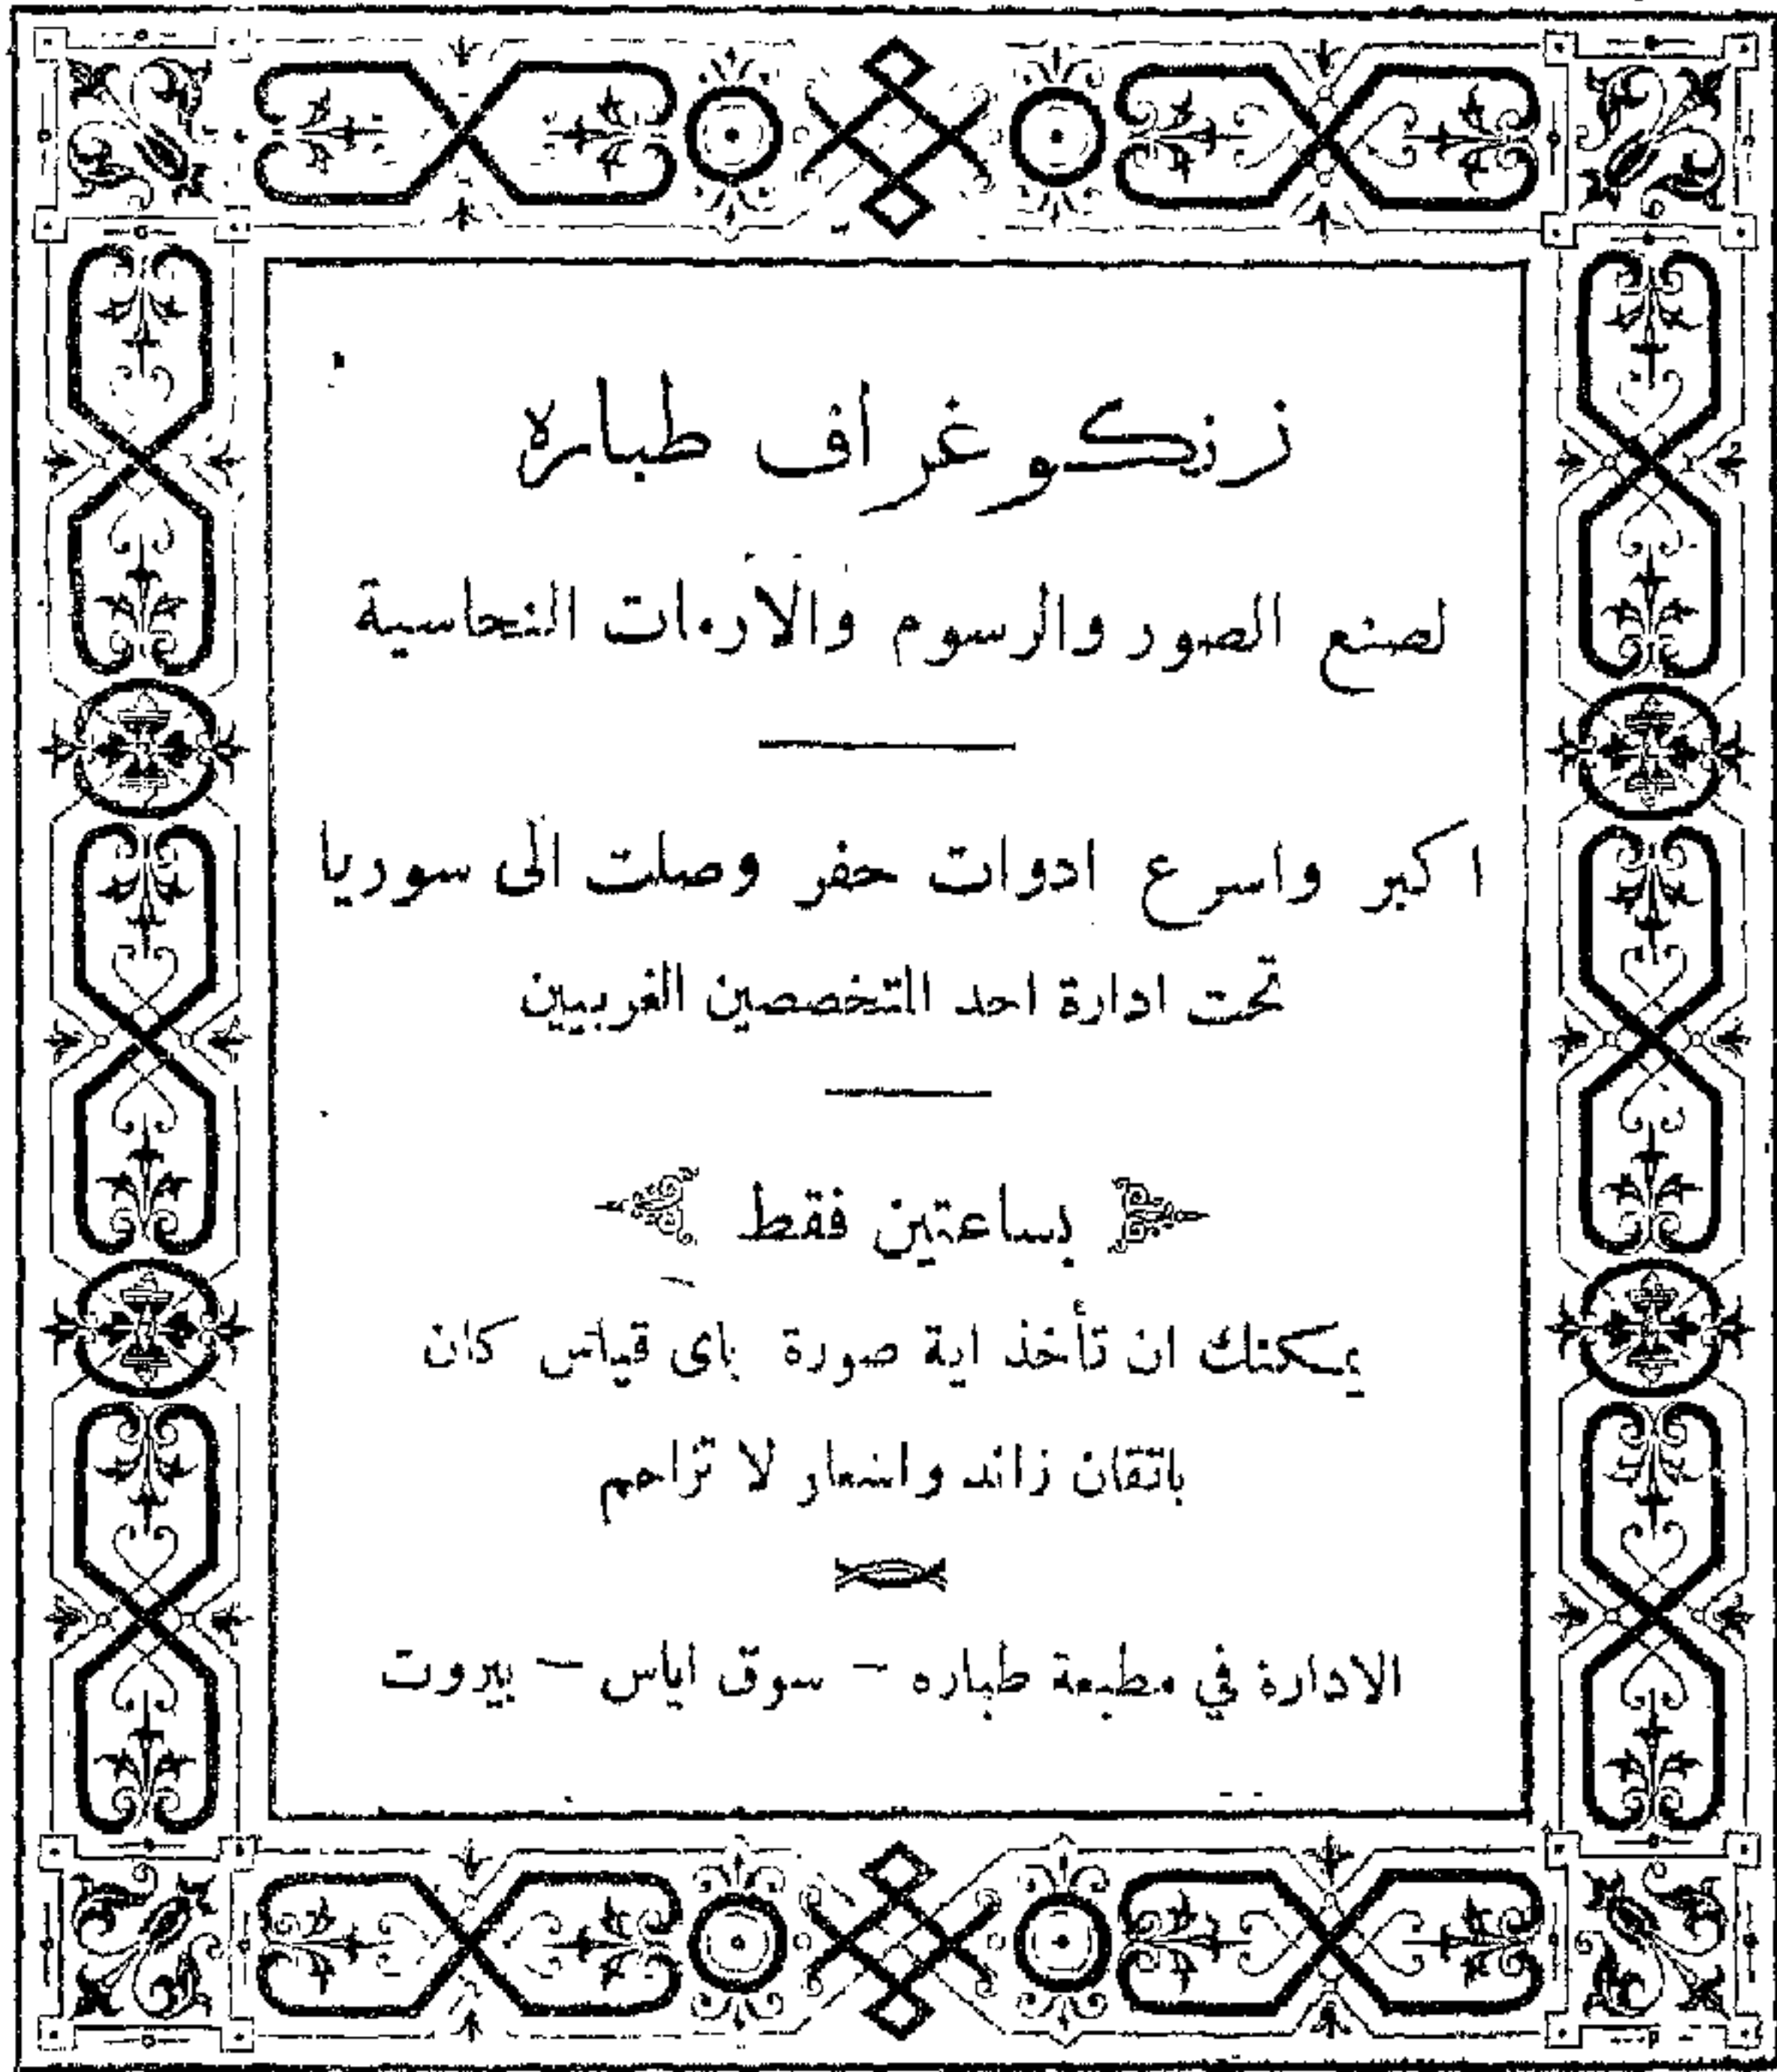 زنكوغراف طباره
لصنع الصور والرسوم والآرمات النحاسية
اكبر واسرع ادوات حفر وصلت الى سوريا
تحت ادارة احد المتخصصين الغربيين
بساعتين فقط
يمكنك ان تأخذ اية صورة باى قياس كان
باتقان زائد واسعار لا تزاحم
الادارة في مطبعة طباره — سوق اياس — بيروت